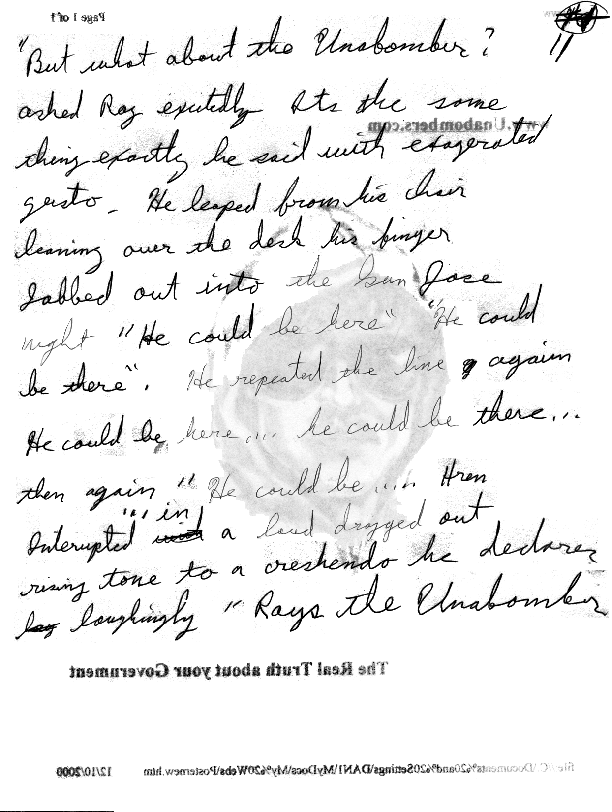 Page 1 of 1
"But what about the Unabomber?
asked Ray excitedly Its the same
www.Unabombers.com
thing exactly he said with exagerated
gusto - He leaped from his chair
leaning over the desk his finger
Jabbed out into the San Jose
night "He could be here" "He could
be there". He repeated the line again
He could be here.... he could be there...
then again "He could be ..... Hren
"" in
Interupted a loud dragged out
rising tone to a creshendo he declares
laughingly "Rays the Unabomber
The Real Truth about your Government
file://C:\Documents%20and%20Settings\DAN1\MyDocs\My%20Webs\Posternew.htm 12/10/2000